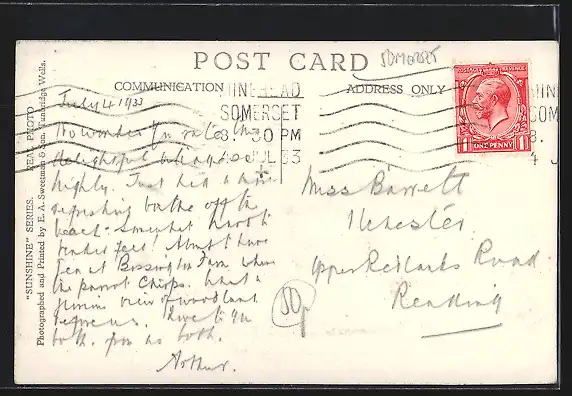 POST CARD
SOMERSET
COMMUNICATION
ADDRESS ONLY
MINEHEAD
SOMERSET
8 30 PM
JUL 33
POSTAGE REVENUE
1 ONE PENNY 1
"SUNSHINE" SERIES. REAL PHOTO.
Photographed and Printed by E. A. Sweetman & Son, Tunbridge Wells.
July 4 1933
No wonder you rate this
delightful village so
highly. Just had a most
refreshing bathe off the
beach - somewhat harsh to
tender feet! About to have
Tea at Bossington Farm where
the parrot chirps. What a
glorious view of woodland
before us. Love to you
both from us both.
Arthur.
Miss Barrett
Ilchester
Upper Redlands Road
Reading
50p